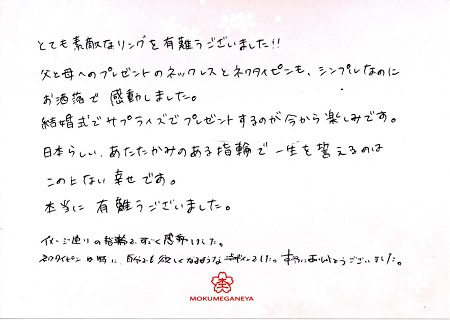 とても素敵なリングを有難うございました!!
父と母へのプレゼントのネックレスとネクタイピンも、シンプルなのに
お洒落で感動しました。
結婚式でサプライズでプレゼントするのが今から楽しみです。
日本らしい、あたたかみのある指輪で一生を誓えるのは
この上ない幸せです。
本当に有難うございました。
イメージ通りの指輪で、すごく感動しました。
ネクタイピンは特に、自分も欲しくなるような デザインでした。本当にありがとうございました。
MOKUMEGANEYA